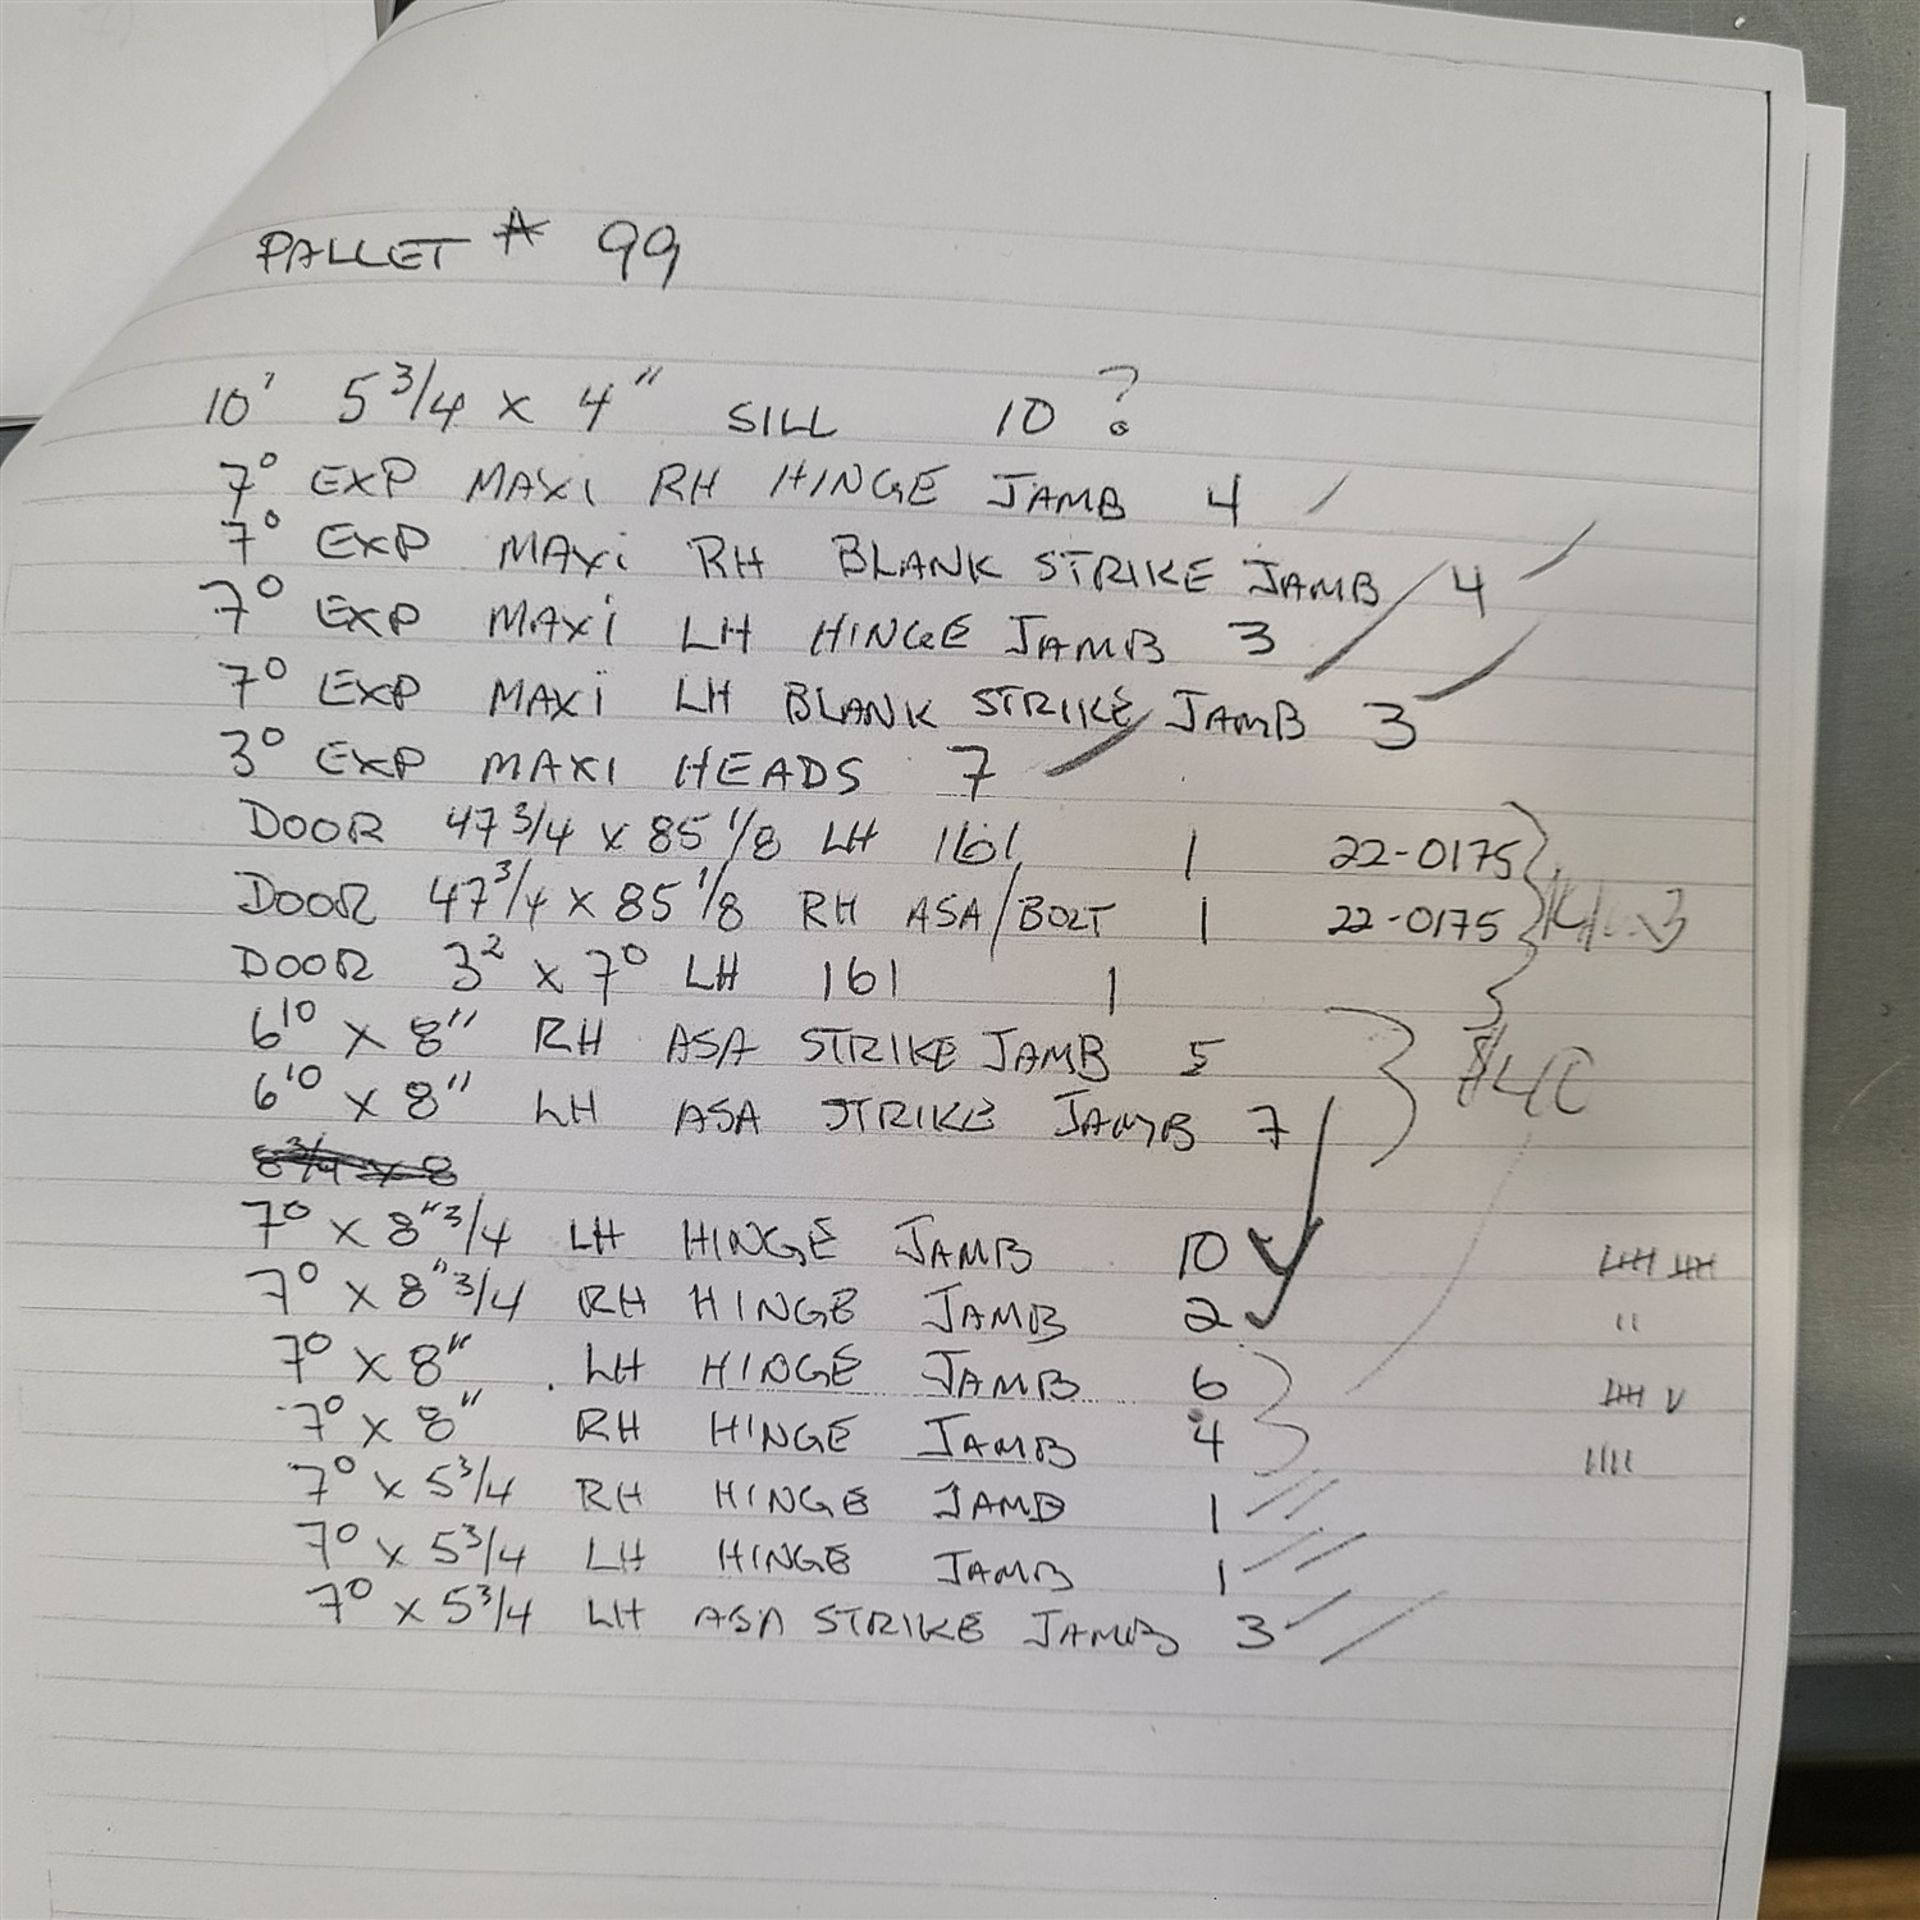 PALLET # 99
10' 5 3/4 x 4" SILL 10 ?
7⁰ EXP MAXI RH HINGE JAMB 4
7⁰ EXP MAXi RH BLANK STRIKE JAMB 4
7⁰ EXP MAXi LH HINGE JAMB 3
7⁰ EXP MAXi LH BLANK STRIKE JAMB 3
3⁰ EXP MAXI HEADS 7
DOOR 47 3/4 x 85 1/8 LH 161 1 22-0175
DOOR 47 3/4 x 85 1/8 RH ASA/BOLT 1 22-0175
DOOR 3² x 7⁰ LH 161 1
6¹⁰ x 8" RH ASA STRIKE JAMB 5
6¹⁰ x 8" LH ASA STRIKE JAMB 7
7⁰ x 8" 3/4 LH HINGE JAMB 10
7⁰ x 8" 3/4 RH HINGE JAMB 2
7⁰ x 8" LH HINGE JAMB 6
7⁰ x 8" RH HINGE JAMB 4
7⁰ x 5 3/4 RH HINGE JAMB 1
7⁰ x 5 3/4 LH HINGE JAMB 1
7⁰ x 5 3/4 LH ASA STRIKE JAMB 3